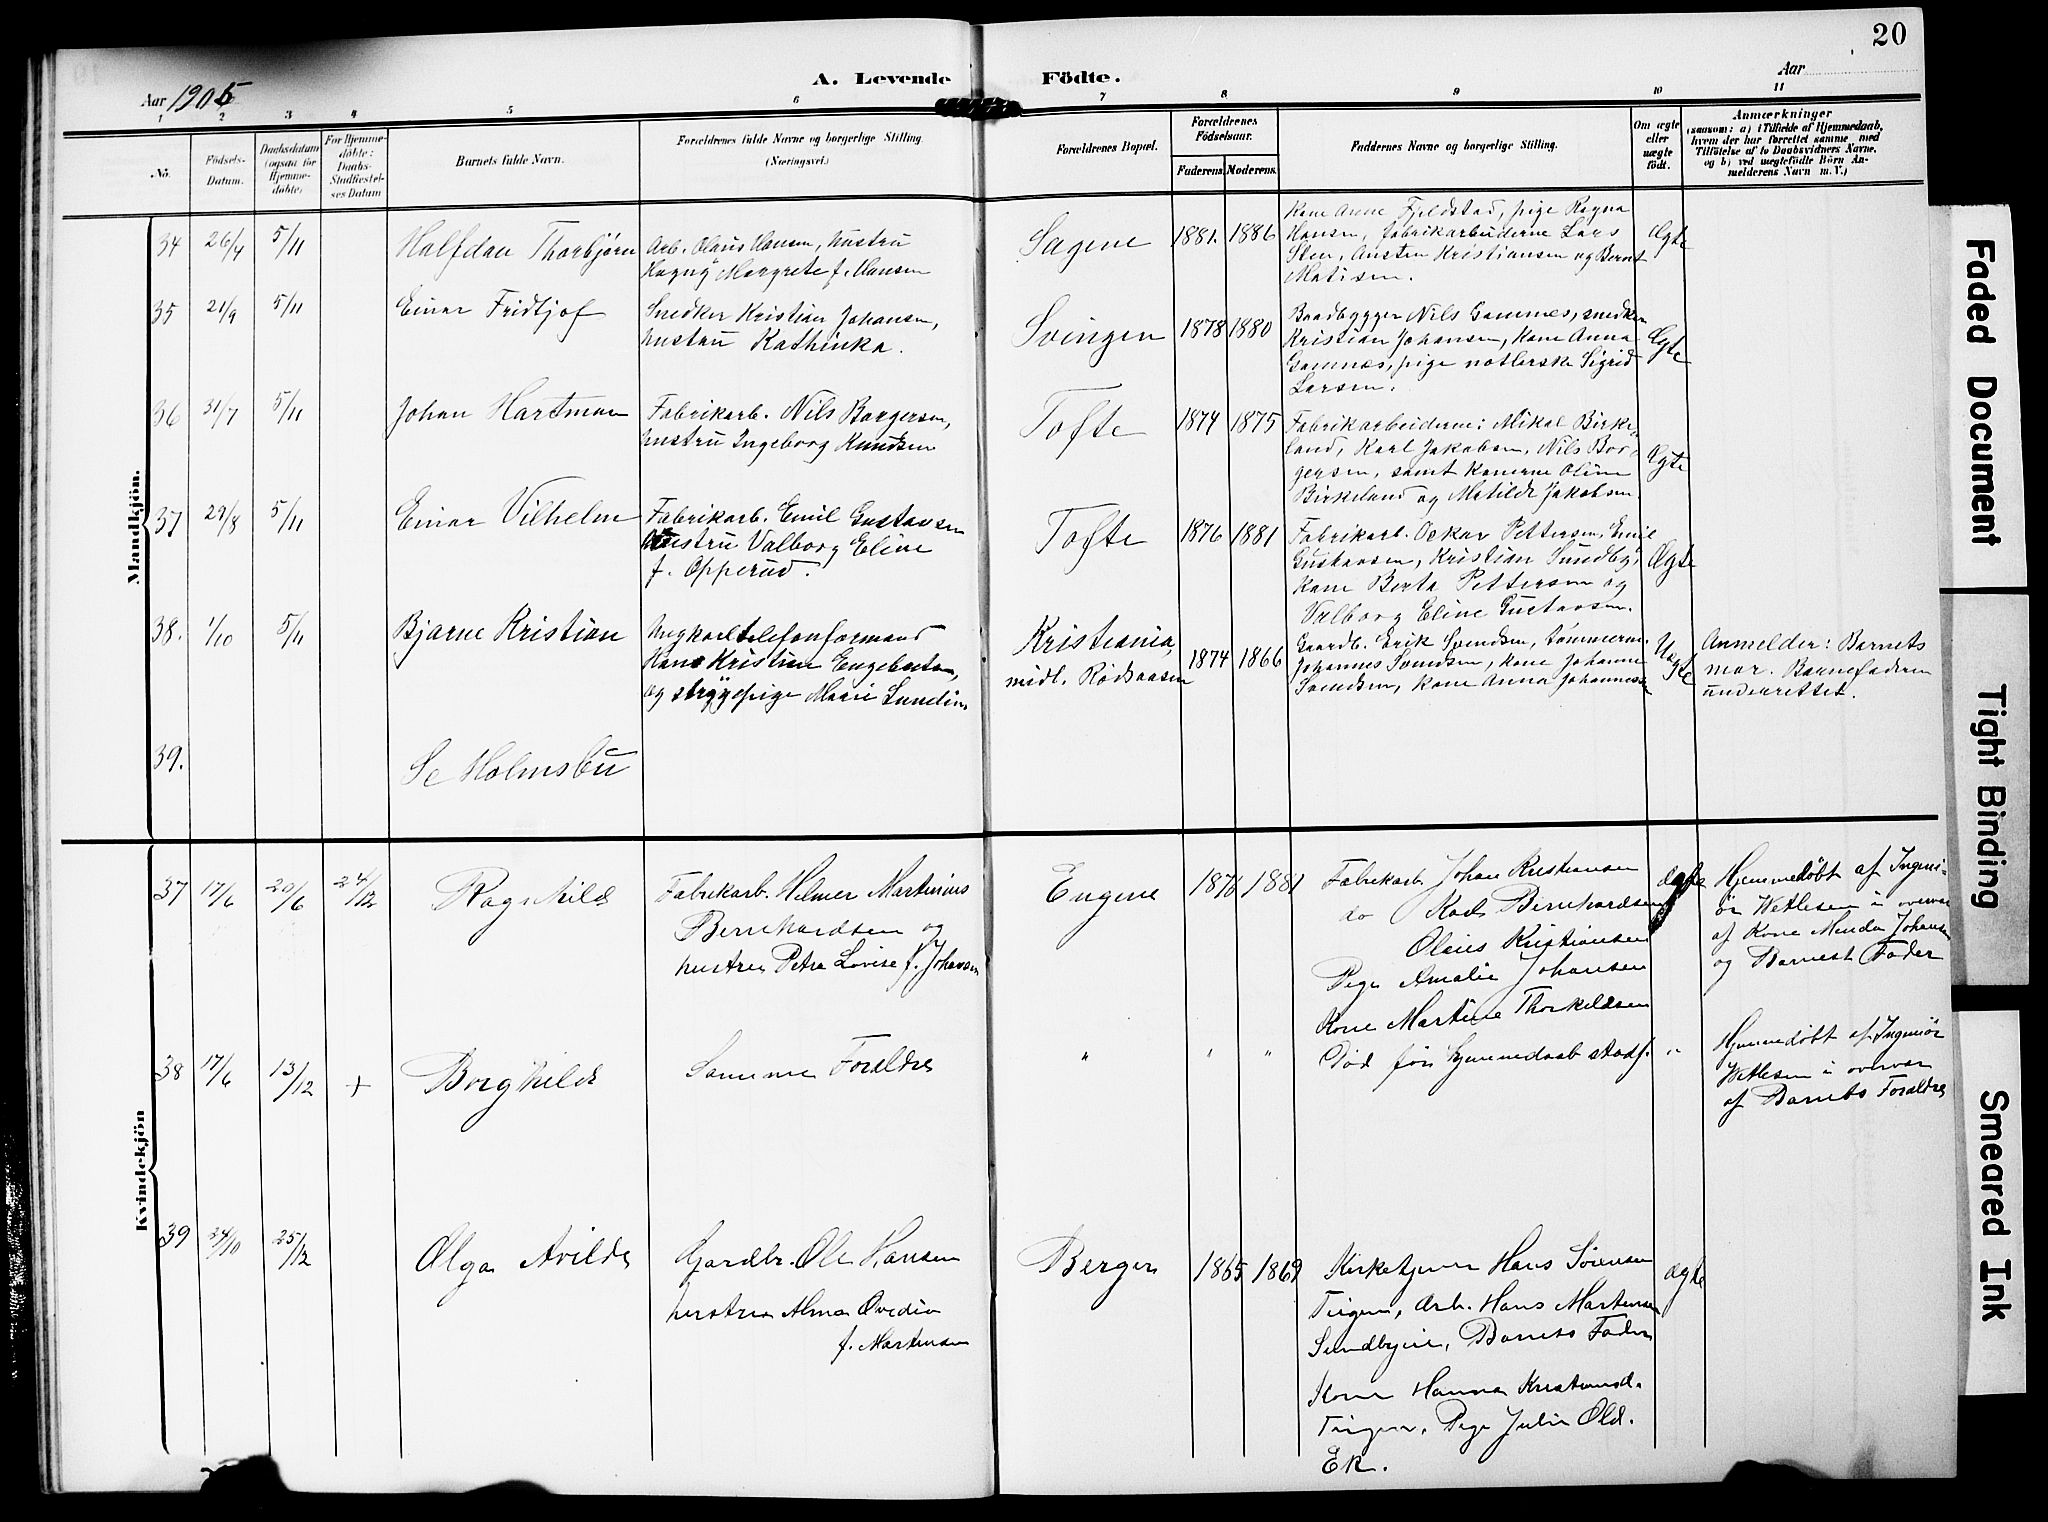 20
A. Levende Födte.
Aar 1905
Aar
1 2 3 4 5 6 7 8 9 10 11
No.
Födsels-Datum.
Daabsdatum (ogsaa for Hjemmedöbte)
For Hjemmedöbte: Daabs-Stadfæstelses Datum
Barnets fulde Navn.
Forældrenes fulde Navne og borgerlige Stilling. (Næringsvei.)
Forældrenes Bopæl.
Forældrenes Födselsaar.
Faderens. Moderens.
Faddernes Navne og borgerlige Stilling.
Om ægte eller uægte födt.
Anmærkninger
(saasom: a) i Tilfælde af Hjemmedaab,
hvem der har forrettet samme med
Tilföielse af to Daabsvidners Navne,
og b) ved uægtefödte Börn An-
melderens Navn m. V.)
Mandkjön.
34 26/4 5/11 Halfdan Thorbjørn
Arb. Olaus Hansen, hustru
Hagny Margrete f. Hansen
Sagene 1881. 1886
Kone Anne Fjeldstad, pige Ragna
Hansen, fabrikarbeiderne Lars
Sten, Austen Kristiansen og Bernt
Matisen.
Ægte
35 21/9 5/11 Einar Fridtjof
Snedker Kristian Johansen,
hustru Kathinka.
Svingen 1878 1880
Baadbygger Nils Gamnes, snedker
Kristian Johansen, Kone Anna
Gamnes, pige Sigrid
Larsen.
Ægte
36 31/7 5/11 Johan Hartman
Fabrikarb. Nils Borgersen,
hustru Ingeborg Knudsen
Tofte 1874 1875
Fabrikarbeiderne: Mikal Birke-
land, Karl Jakobsen, Nils Bor-
gersen, samt Konerne Oline
Birkeland og Matilde Jakobsen.
Ægte
37 29/8 5/11 Einar Vilhelm
Fabrikarb. Emil Gustavsen
hustru Valborg Eline
f. Opperud.
Tofte 1876 1881
Fabrikarb. Oskar Pettersen, Emil
Gustavsen, Kristian Sundby,
Kone Berta Pettersen og
Valborg Eline Gustavsen.
Ægte
38. 1/10 5/11 Bjarne Kristian
Ungkarl telefonformand
Hans Kristian Engebretsen,
og strygepige Marie Lundin
Kristiania,
midl. Rødsaasen
1874 1866
Gaardb. Erik Svendsen, tømmerm.
Johannes Svendsen, Kone Johanne
Svendsen, Kone Anna Johannessen
Uægte
Anmelder: Barnets
mor. Barnefaderen
underrettet.
39. Se Holmsbu
Kvindekjön
37 17/6 20/6 24/12 Ragnhild
Fabrikarb. Helmer Martinius
Bernhardsen og
hustru Petra Lovise f. Johansen
Engene 1876 1881
Fabrikarb. Johan Kristiansen
do Karls Bernhardsen
Olaus Kristiansen
Pige Amalie Johansen
Kone Martine Thorkildsen
ægte
Hjemmedøbt af Ingeni-
ør Wetlesen i overvær
af Kone Minda Johansen
og Barnest Fader
38 17/6 13/12 + Borghild
Samme Foraldre
" " "
Død før Hjemmedaab stadf. "
Hjemmedøbt af Ingeniør
Wetlesen i overvær
af Barnets Foraldre
39 24/10 25/12 Olga Avilde
Gjardbr. Ole Hansen
hustru Alma Ovedia
f. Martinsen
Bergen 1865 1869
Kirketjener Hans Sørensen
Teigen, Arb. Hans Martinsen
Sundbyeie, Barnets Fader
Kone Hanna Kristiansd.
Teigen, Pige Julie Old.
Ek.
ægte
Faded Document
Tight Binding
Smeared Ink